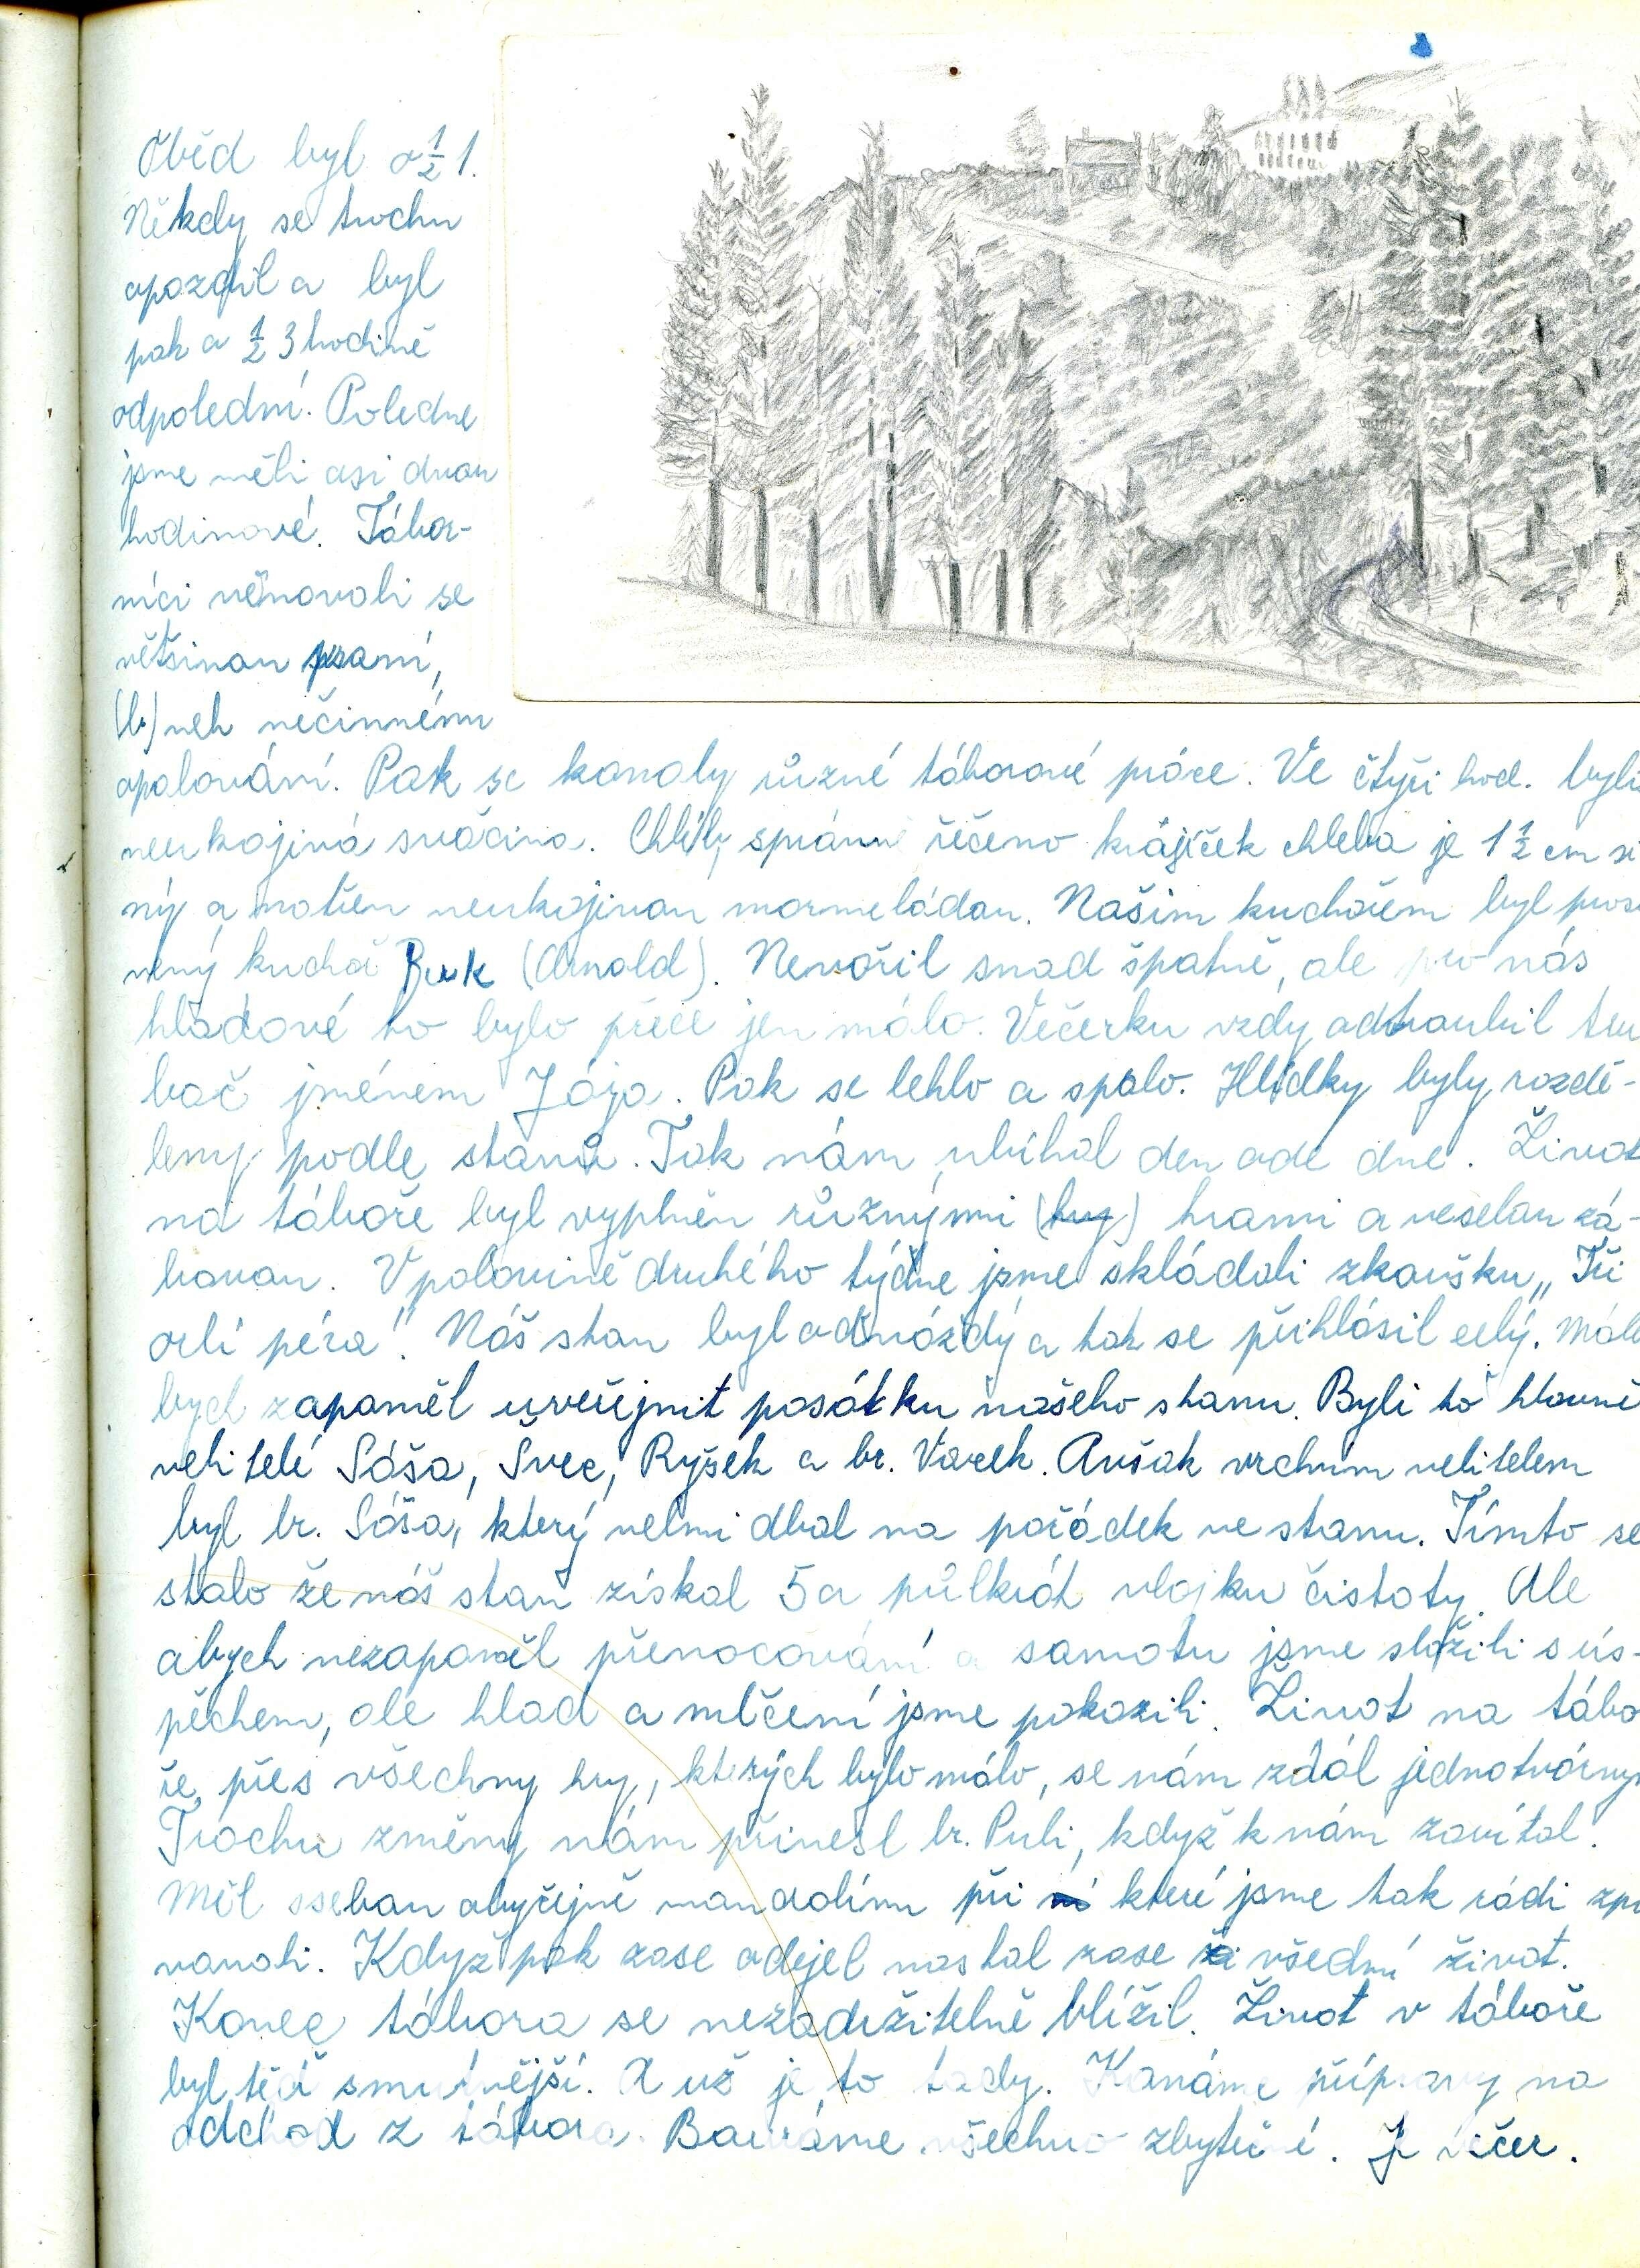 Oběd byl o ½ 1.
Někdy se trochu
opozdil a byl
pak o ½ 3 hodině
odpolední. Poledne
jsme měli asi dvou
hodinové. Tábor-
níci věnovali se
většinou psaní,
(b) neb nečinnému
opalování. Pak se konaly různé táborové práce. Ve čtyři hod. byla
neukojivá svačina. Chléb, správně řečeno krajíček chleba je 1 ½ cm si
ný a mořen neukojivou marmeládou. Našim kuchařem byl pros
kuchař Buk (Arnold). Nevařil snad špatně, ale pro nás
hladové to bylo přece jen málo. Večerku vždy odtroubil tru
bač jménem Jája. Pak se lehlo a spalo. Hlídky byly rozdě-
leny podle stanů. Tak nám ubíhal den ode dne. Život
na táboře byl vyplněn různými (hry) hrami a veselou zá-
bavou. V polovině druhého týdne jsme skládali zkoušku „Tři
orlí péra". Náš stan byl odváždý a tak se přihlásil celý. Mále
bych zapoměl uveřejnit posátku našeho stanu. Byli to hlavně
velitelé Sáša, Švec, Ryšek a br. Vacek. Avšak vrchním velitelem
byl br. Sáša, který velmi dbal na pořádek ve stanu. Tímto se
stalo že náš stan získal 5 a půlkrát vlajku čistoty. Ale
abych nezapoměl přenocování a samotu jsme složili s ús-
pěchem, ale hlad a mlčení jsme pokazili. Život na tábo
ře, přes všechny hry, kterých bylo málo, se nám zdál jednotvárný
Trochu změny nám přinesl br. Puli, když k nám zavítal.
Měl ssebou obyčejně mandolínu při ní které jsme tak rádi zpí
vávali. Když pak zase odejel nastal zase ži všední život.
Konec tábora se nezadržitelně blížil. Život v táboře
byl teď smutnější. A už je to tady. Konáme přípravy na
odchod z tábora. Bouráme všechno zbytečné. Je večer.